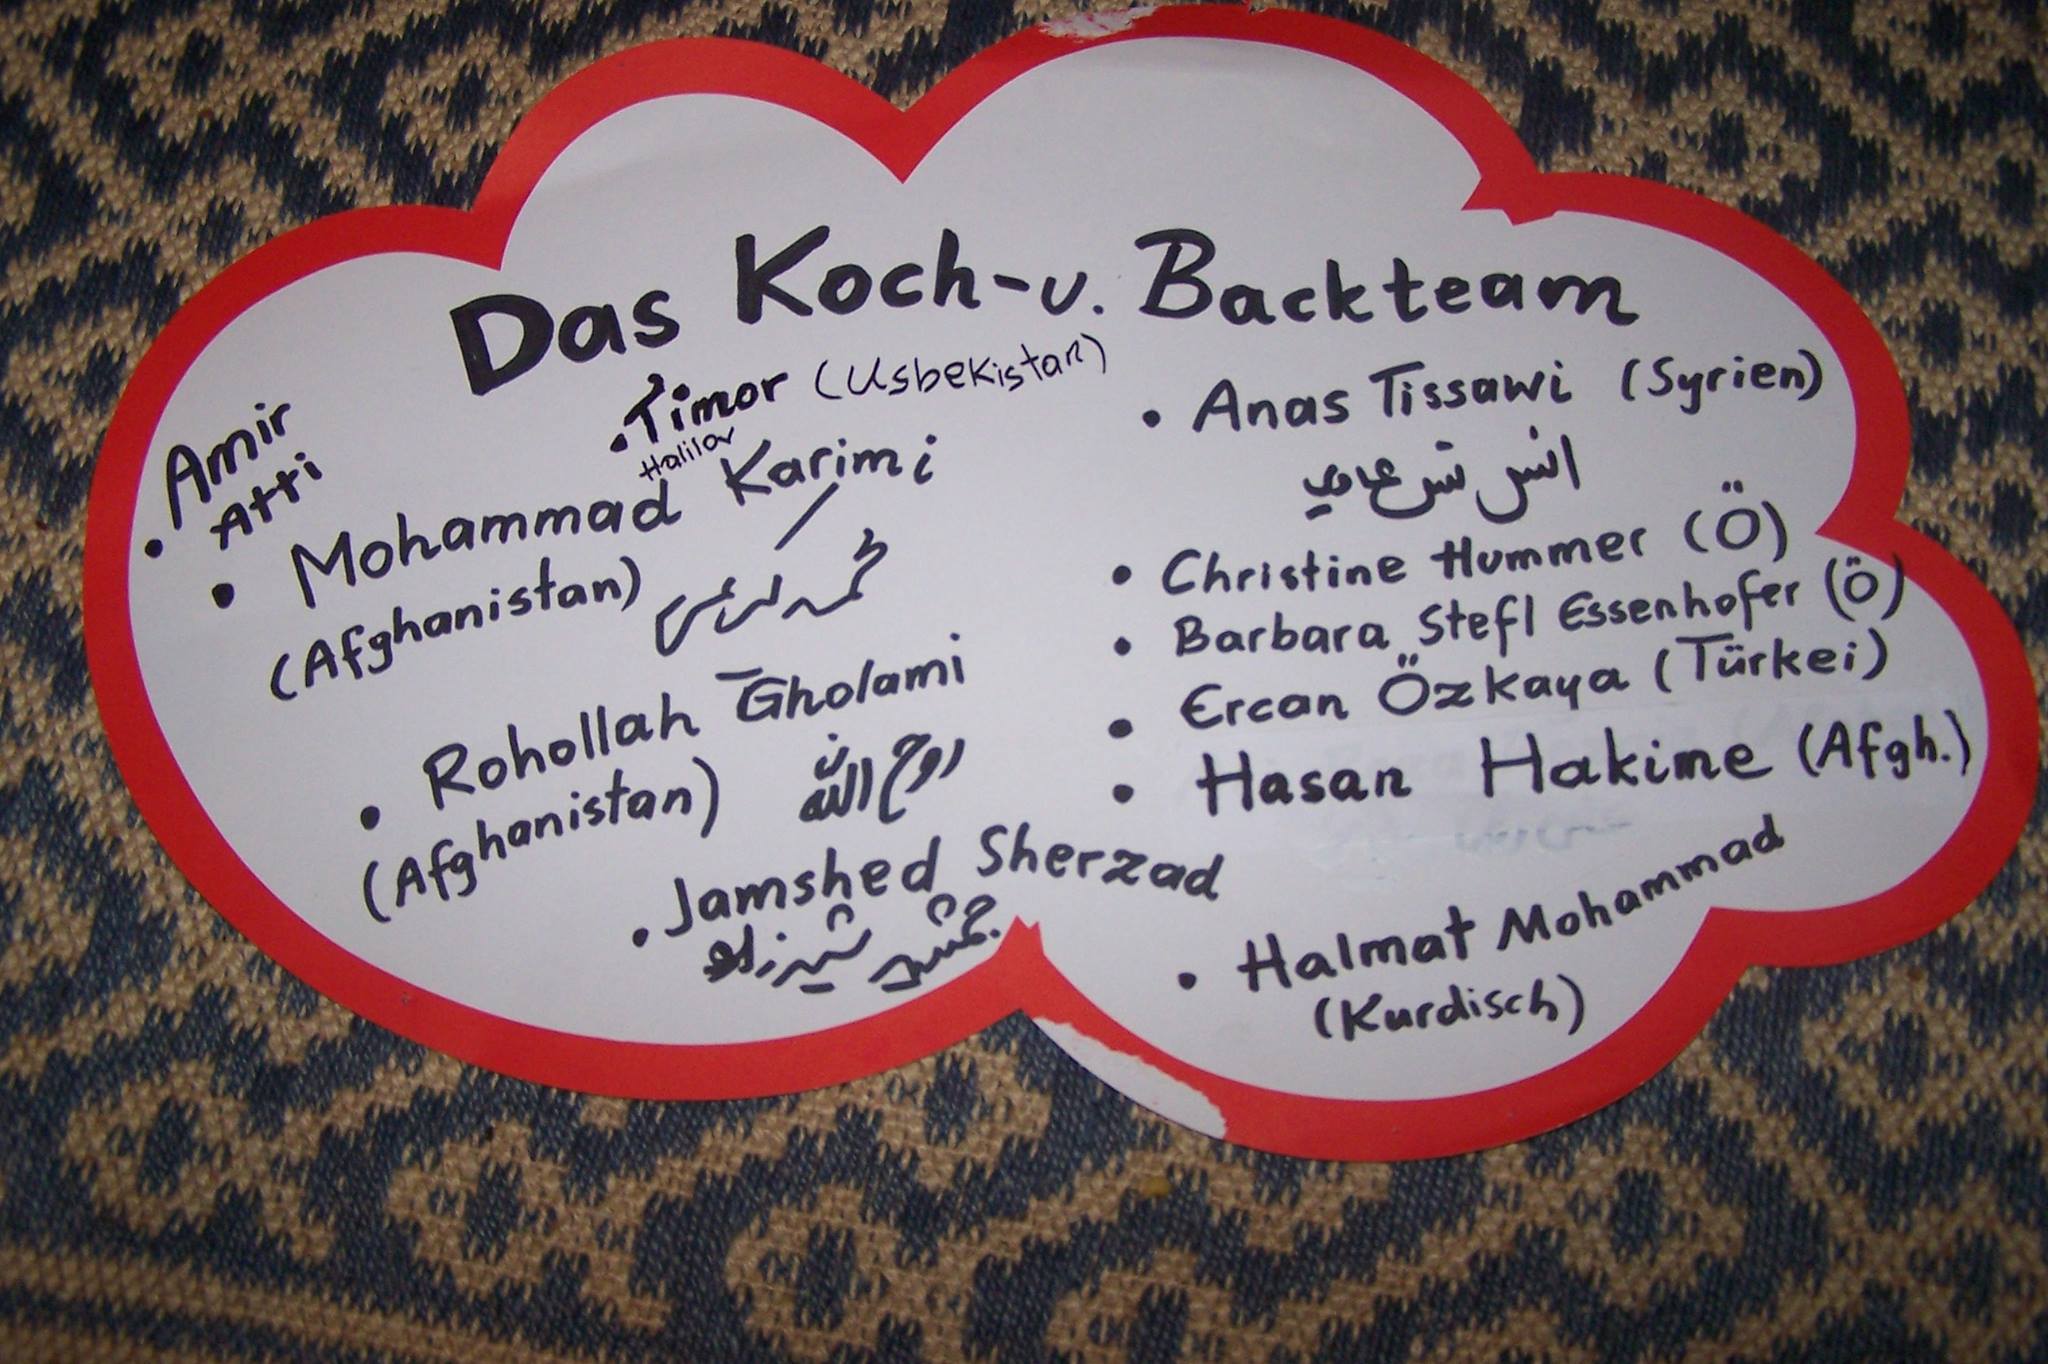 Das Koch-u. Backteam
• Amir
Atti
• Timor (Usbekistan)
Halilov
• Mohammad Karimi
(Afghanistan)
• Rohollah Gholami
(Afghanistan)
روح الله
• Jamshed Sherzad
جمشید شیرزاد
• Anas Tissawi (Syrien)
انس
• Christine Hummer (Ö)
• Barbara Stefl Essenhofer (Ö)
• Ercan Özkaya (Türkei)
• Hasan Hakime (Afgh.)
• Halmat Mohammad
(Kurdisch)